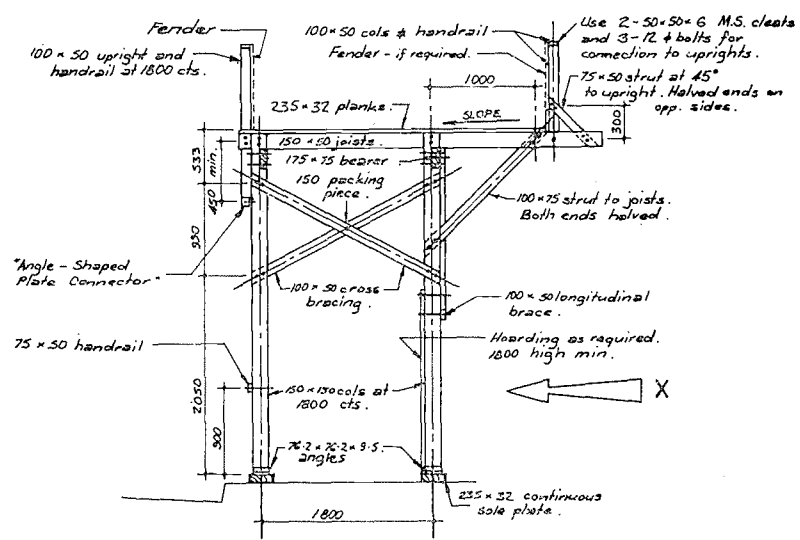 Fender
100 × 50 upright and
handrail at 1800 cts.
100 × 50 cols & handrail
Fender - if required.
Use 2 - 50 × 50 × 6 M.S. cleats
and 3 - 12 ϕ bolts for
connection to uprights.
75 × 50 strut at 45°
to upright. Halved ends on
opp. sides.
1000
235 × 32 planks
SLOPE
300
150 × 50 joists.
175 × 75 bearer
150 packing
piece.
533
450 min.
930
100 × 75 strut to joists.
Both ends halved.
"Angle - Shaped
Plate Connector"
100 × 50 cross
bracing.
100 × 50 longitudinal
brace.
75 × 50 handrail
Hoarding as required.
1800 high min.
2050
900
150 × 150 cols at
1800 cts.
X
76.2 × 76.2 × 9.5
angles
235 × 32 continuous
sole plate.
1800